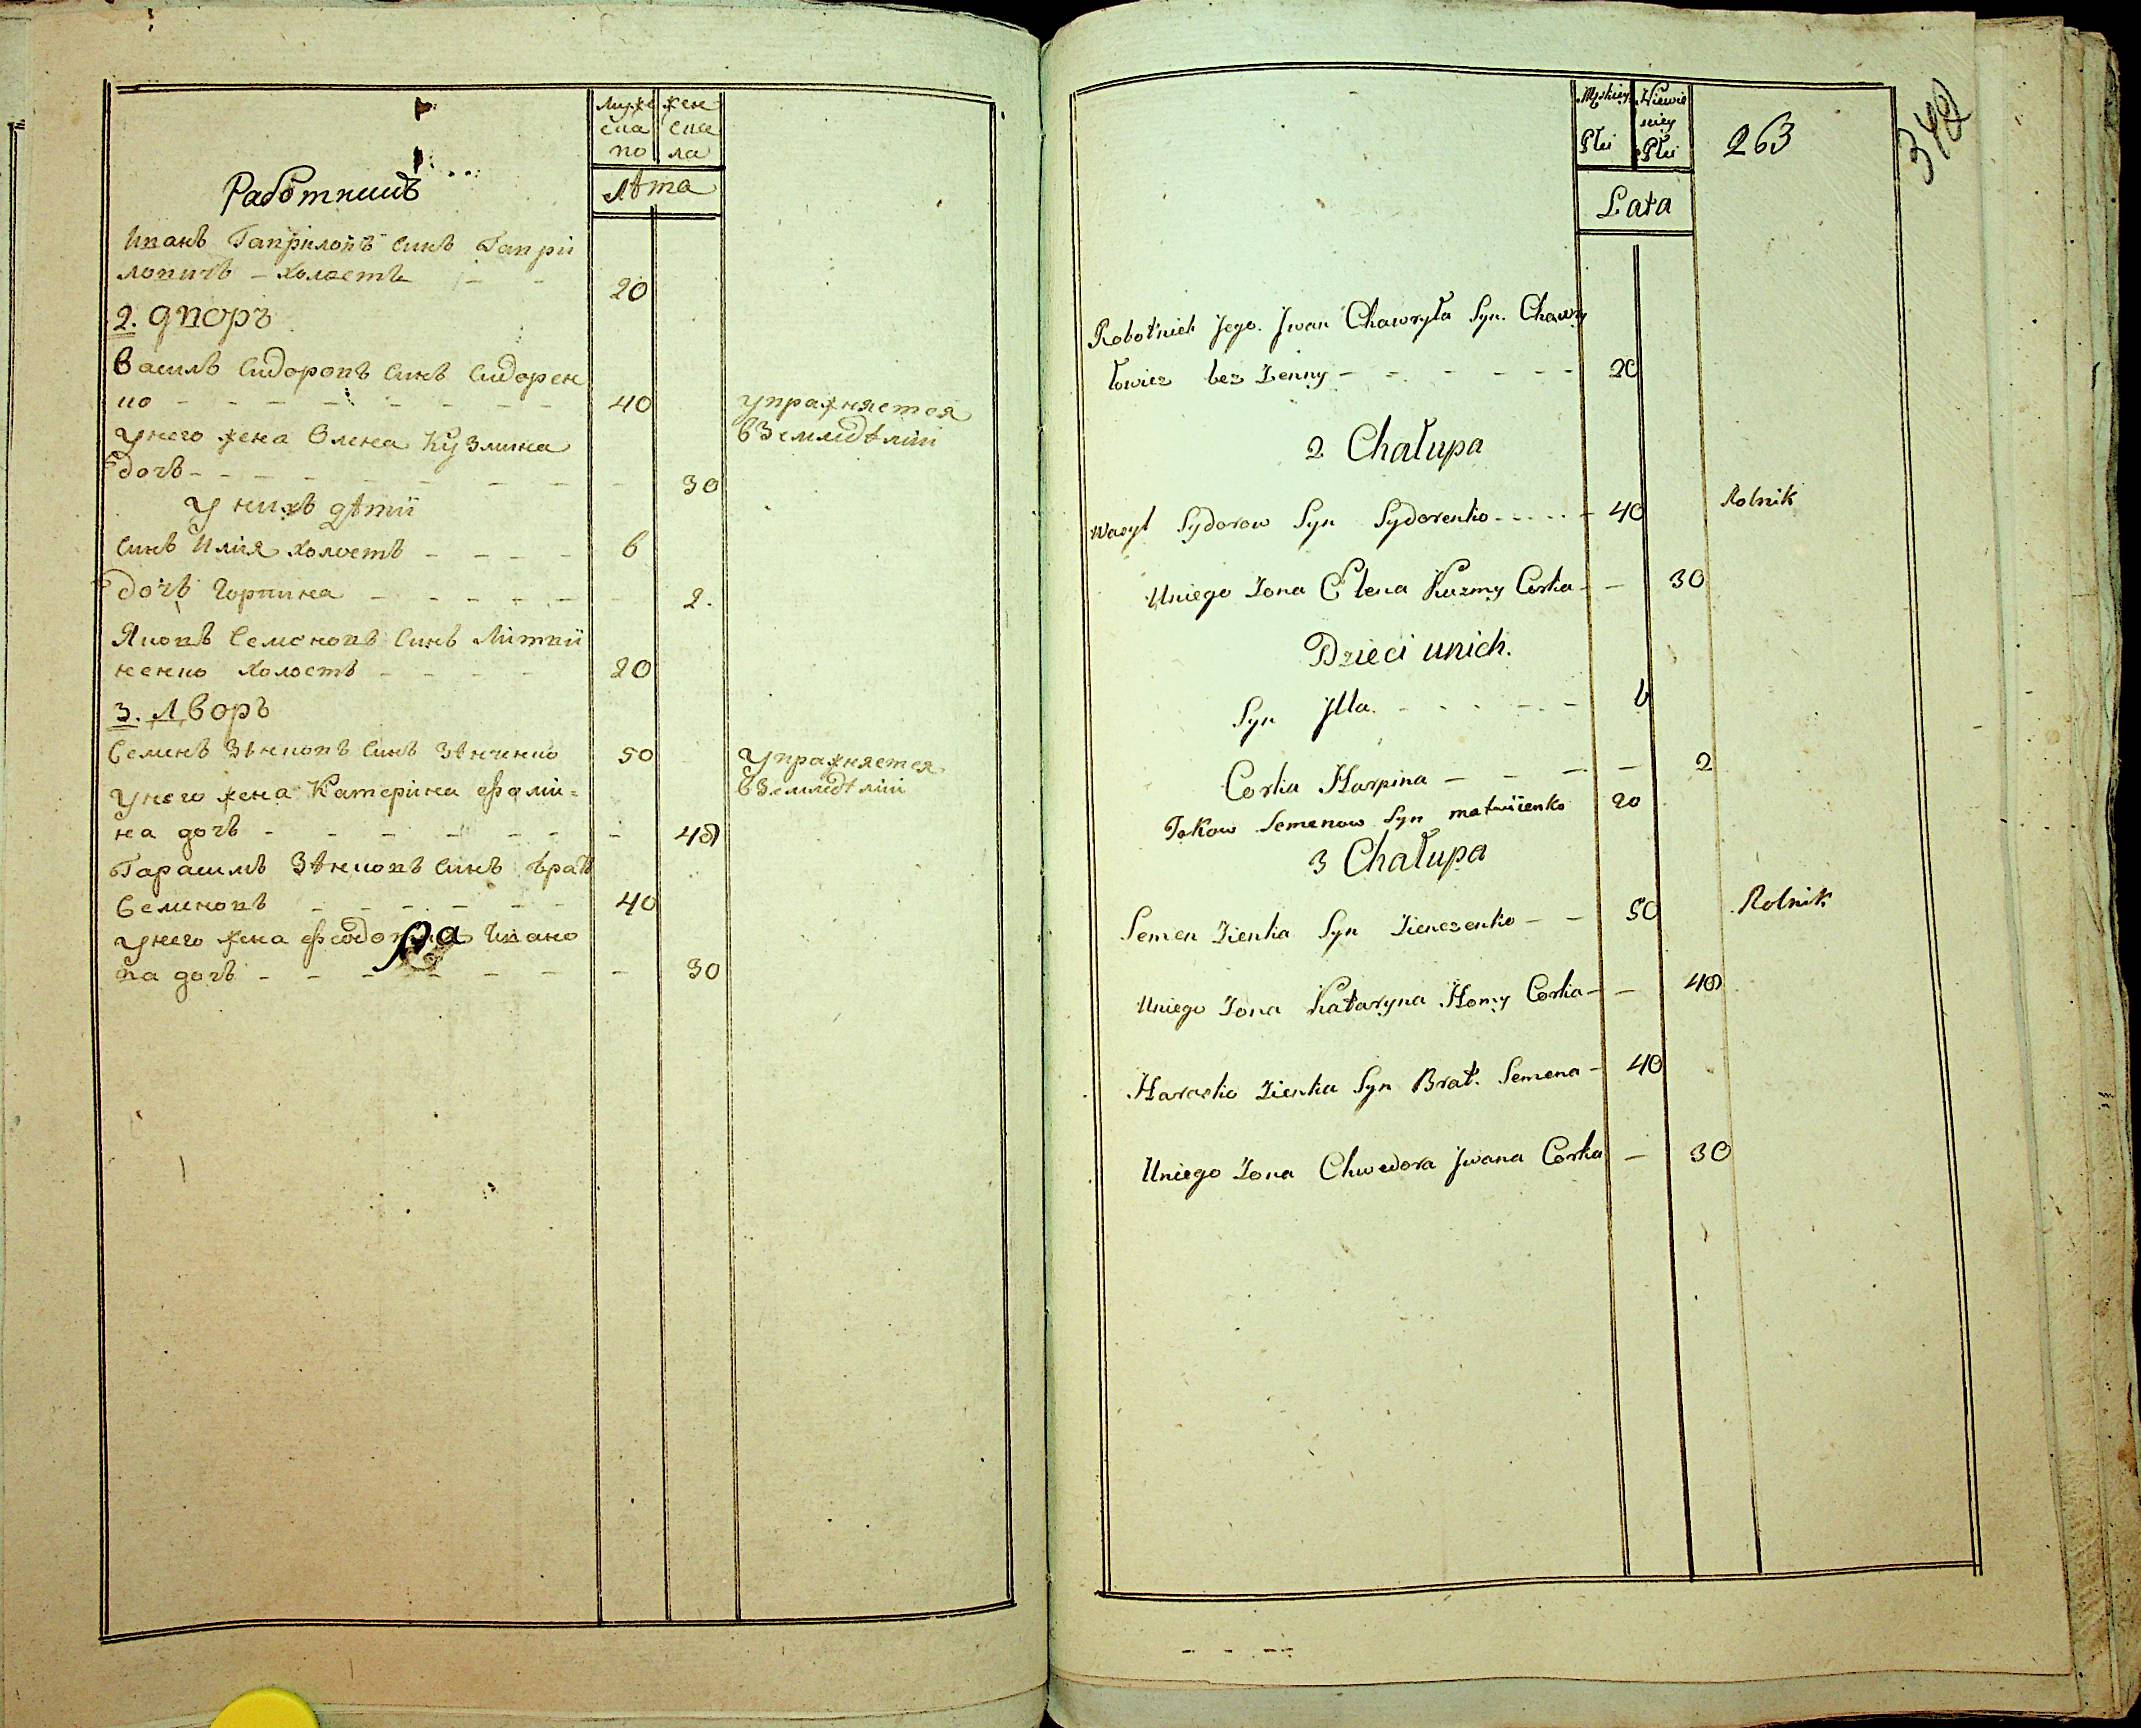 муже жен
ска ска
по ла
лѣта
Работникъ
Иванъ Гаврiловъ синъ Гаврi
ловичъ - холастъ - - 20
2. дворъ
Василь Сидоровъ синъ Сидорен
ко - - - - - - - - 40 упражняется
унего жена Олена Кузмина вземледѣлiи
дочъ - - - - - - - - 30
у нихъ дѣтiи
синъ Илiя холостъ - - - - 6
дочъ Горпина - - - - - - 2.
Яковъ Семеновъ синъ Мiтвiи
ченко холостъ - - - - 20
3. Дворъ
Семинъ Зѣнковъ синъ Зѣнченко 50 упражняется
унего жена Катерiна Фомiи= вземледѣлiи
на дочъ - - - - - - - 40
Гарасимъ Зѣнковъ синъ братъ
Семиновъ - - - - - - 40
унего жена Ивано
ва дочъ - - - - - - - 30
Męskiey Niewie
sciey
Płci Płci
263
342
Lata
Robotnich Jego. Jwan Chawryła Syn. Chawry
łowicz bez Zenny - - - - - - 20
2 Chałupa
Wasyl Sydorow Syn Sydorenko - - - - - 40 Rolnik
Uniego Zona Olena Kuzmy Corka - - 30
Dzieci unich.
Syn Jlla. - - - - - - 6
Corka Harpina - - - - - 2
Jakow Semenow Syn matwiienko 20
3 Chałupa
Semen Zienka Syn Zienczenko - - 50 Rolnik
Uniego Zona Kataryna Homy Corka - - 40
Harasko Zienka Syn Brat. Semena - 40
Uniego Zona Chwedora Jwana Corka - 30